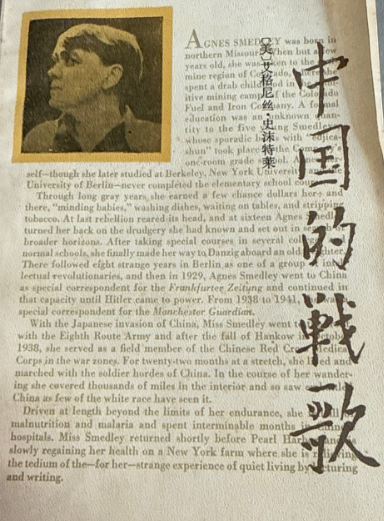 中国的戰歌
(美)艾格尼丝·史沫特莱
AGNES SMEDLEY was born in
northern Missouri. When but a few
years old, she was taken to the
mine region of Colorado, where she
spent a drab childhood in the
itive mining camps of the Colorado
Fuel and Iron Company. A formal
education was an unknown quan-
tity to the five young Smedleys
whose sporadic
shun" took place
one-room grade school.
self—though she later studied at Berkeley, New York University
University of Berlin—never completed the elementary school
Through long gray years, she earned a few chance dollars here and
there, "minding babies," washing dishes, waiting on tables, and stripping
tobacco. At last rebellion reared its head, and at sixteen Agnes Smedley
turned her back on the drudgery she had known and set out in
broader horizons. After taking special courses in several
normal schools, she finally made her way to Danzig aboard an old
There followed eight strange years in Berlin as one of a group
lectual revolutionaries, and then in 1929, Agnes Smedley went to China
as special correspondent for the Frankfurter Zeitung and continued in
that capacity until Hitler came to power. From 1938 to 1941,
special correspondent for the Manchester Guardian.
With the Japanese invasion of China, Miss Smedley went
with the Eighth Route Army and after the fall of Hankow in
1938, she served as a field member of the Chinese Red Cross Medical
Corps in the war zones. For twenty-two months at a stretch, she lived and
marched with the soldier hordes of China. In the course of her wander-
ing she covered thousands of miles in the interior and so saw
China as few of the white race have seen it.
Driven at length beyond the limits of her endurance, she
malnutrition and malaria and spent interminable months in Chinese
hospitals. Miss Smedley returned shortly before Pearl Harbor
slowly regaining her health on a New York farm where she is
the tedium of the—for her—strange experience of quiet living by lecturing
and writing.